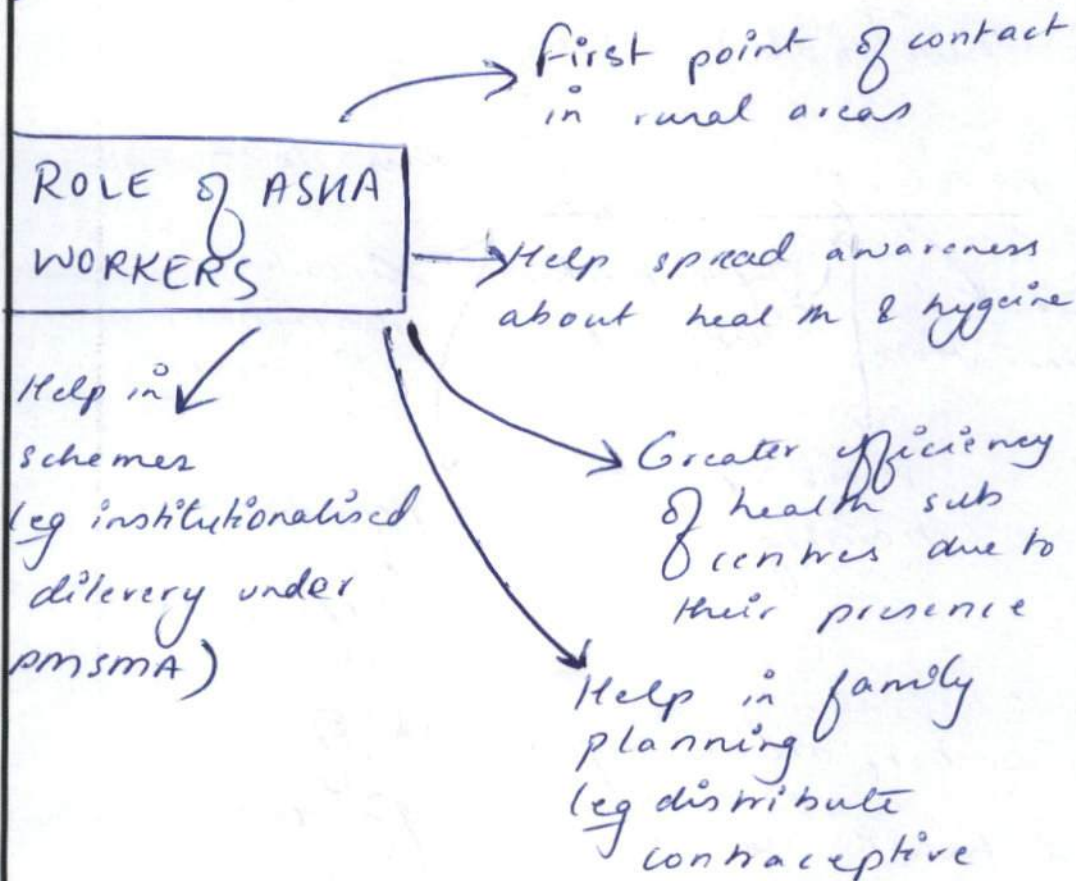 ROLE of ASHA
WORKERS
First point of contact
in rural areas
Help spread awareness
about health & hygeine
Greater efficiency
of health sub
centres due to
their presence
Help in family
planning
(eg distribute
contraceptive
Help in
schemes
(eg institutionalised
dilevery under
PMSMA)